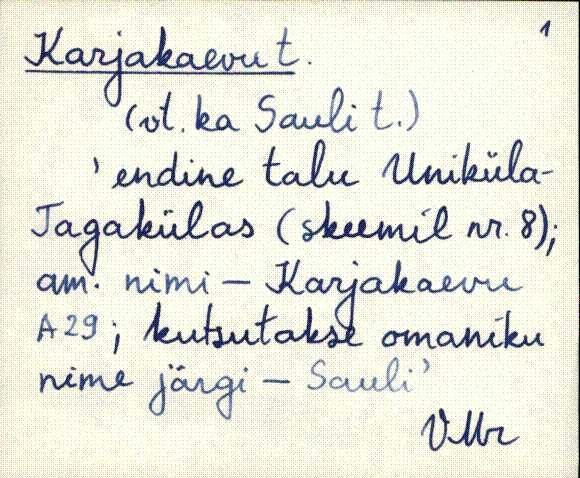 1
Karjakaevu t.
(vt. ka Sauli t.)
' endine talu Uniküla-
Tagakülas (skeemil nr. 8);
am. nimi – Karjakaevu
A29; kutsutakse omaniku
nime järgi – Sauli'
VMr